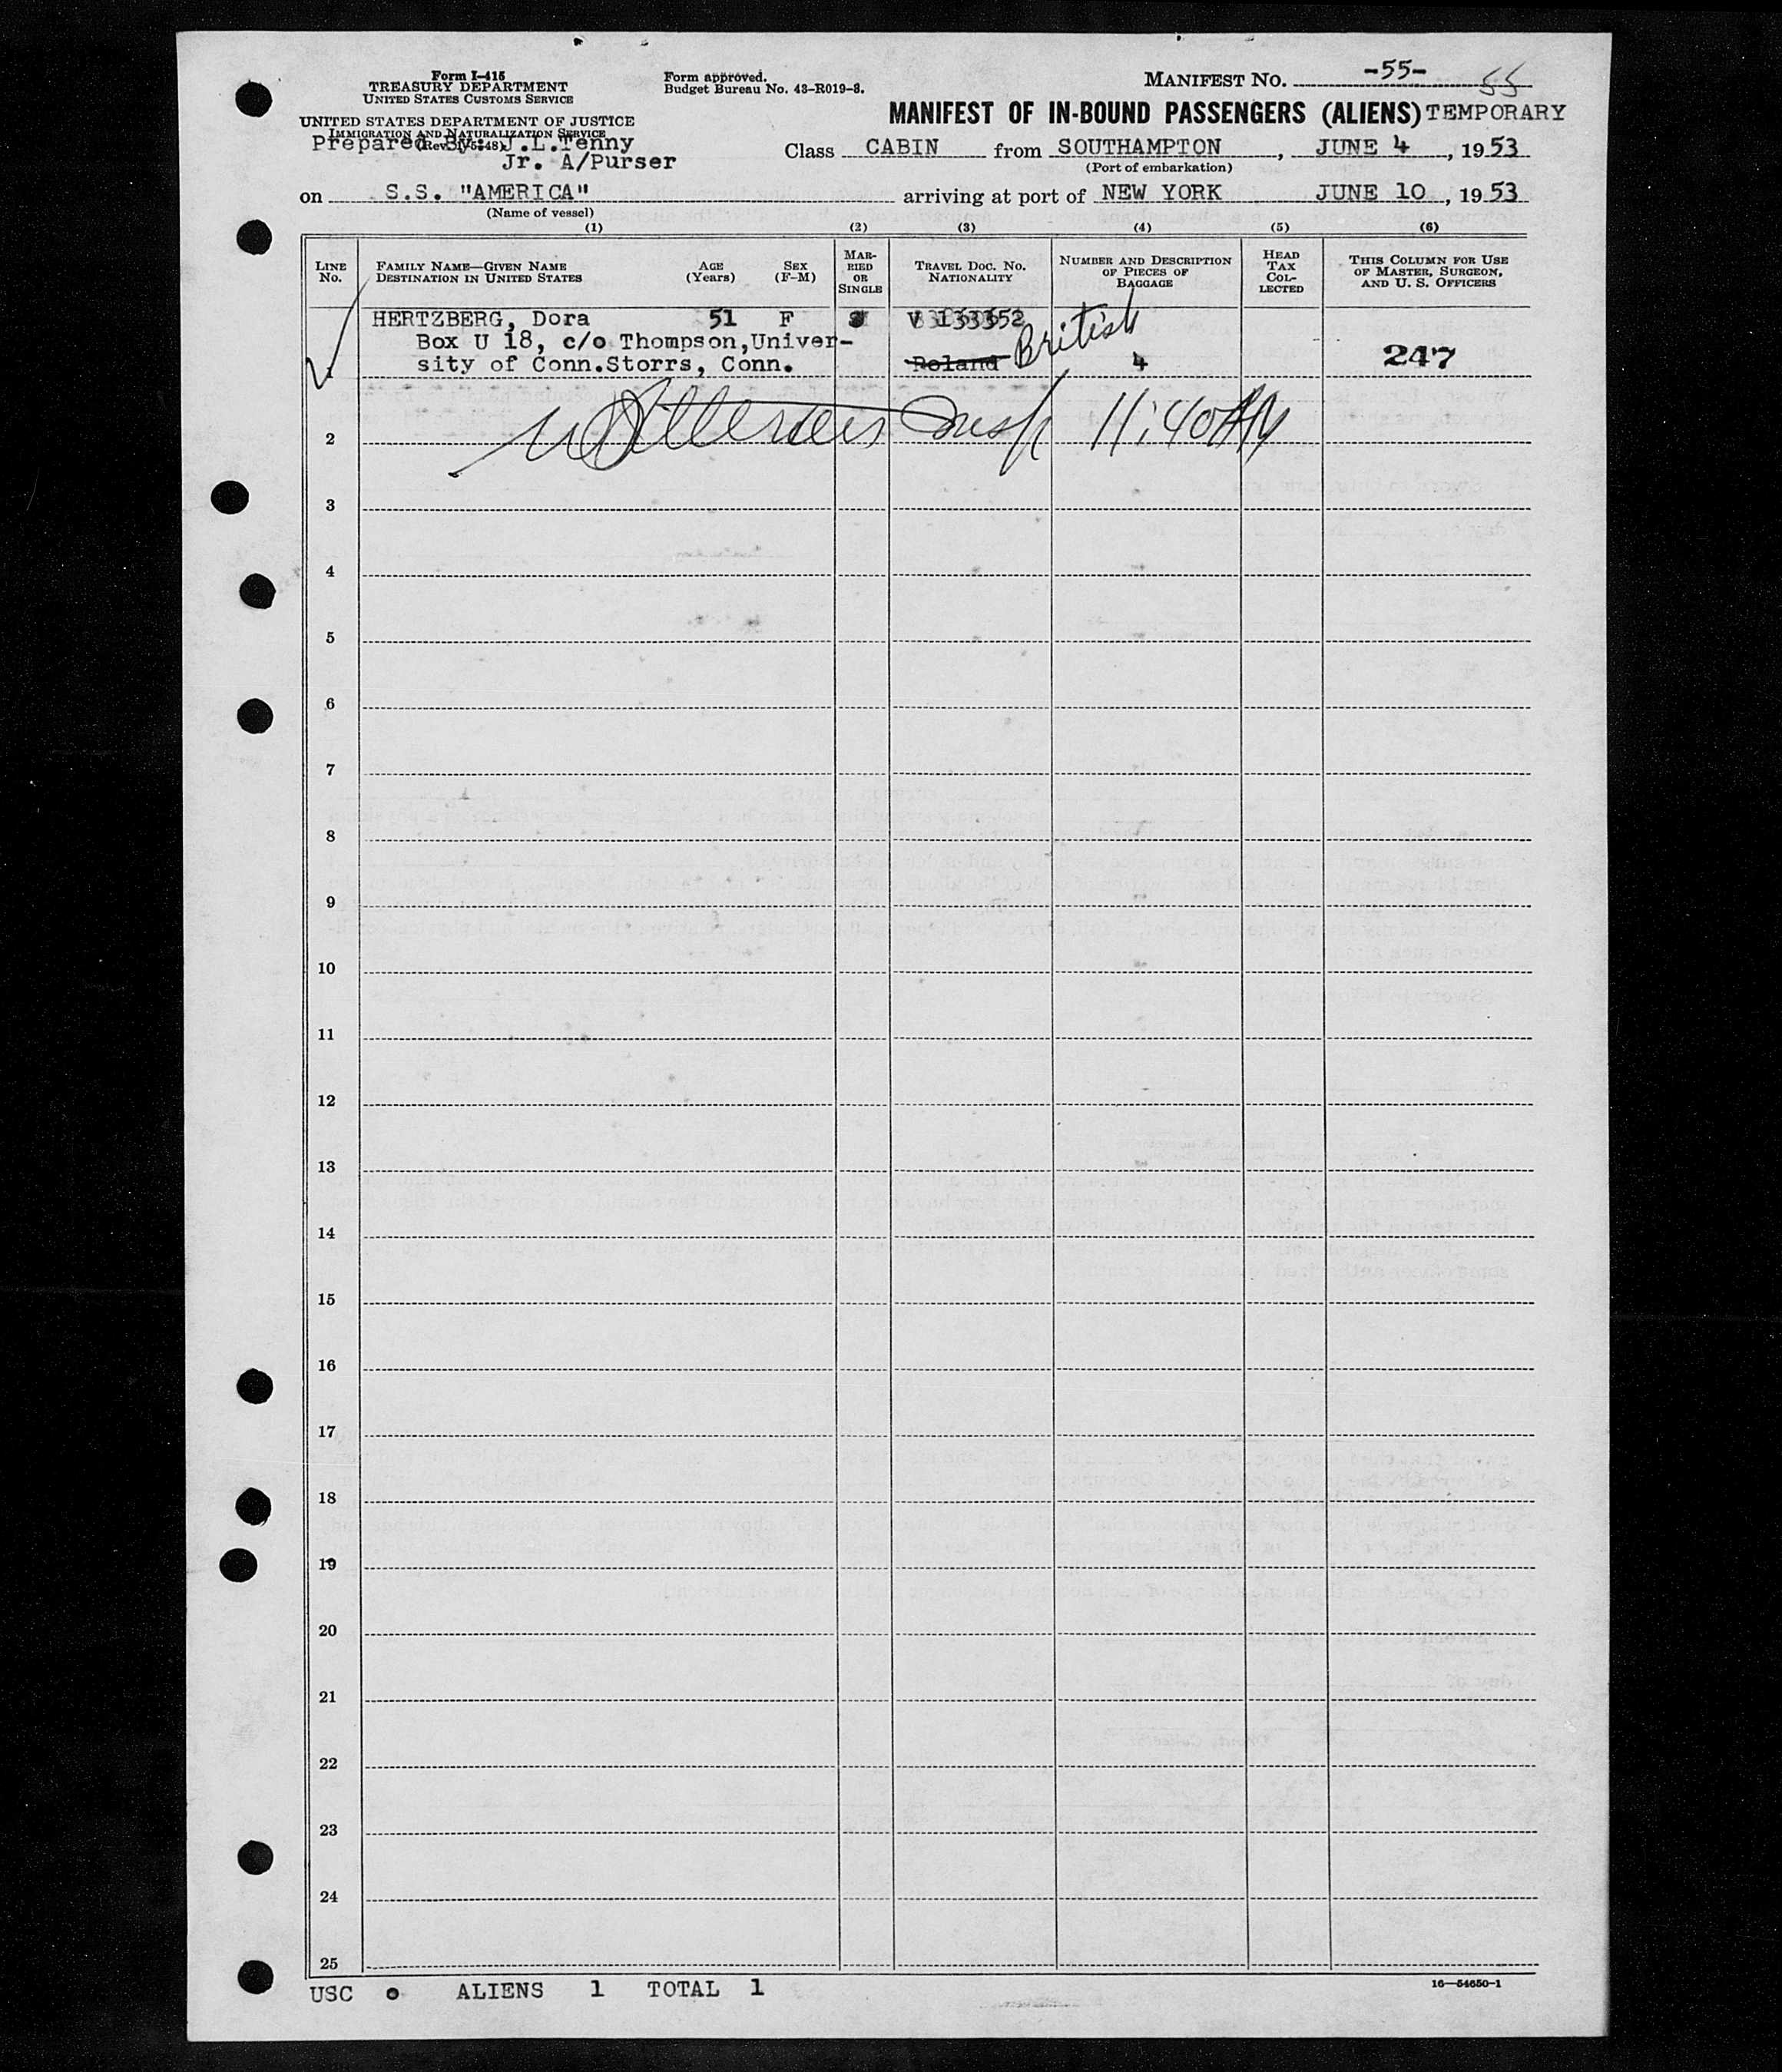 Form I-415
TREASURY DEPARTMENT
UNITED STATES CUSTOMS SERVICE
UNITED STATES DEPARTMENT OF JUSTICE
IMMIGRATION AND NATURALIZATION SERVICE
Prepared By: J.L.Tenny
Jr. A/Purser
Form approved.
Budget Bureau No. 43-R019-3.
MANIFEST NO. -55- 55
MANIFEST OF IN-BOUND PASSENGERS (ALIENS) TEMPORARY
Class CABIN from SOUTHAMPTON, JUNE 4, 1953
(Port of embarkation)
on S.S. "AMERICA" arriving at port of NEW YORK JUNE 10, 1953
(Name of vessel)
(1) (2) (3) (4) (5) (6)
LINE NO.
FAMILY NAME—GIVEN NAME
DESTINATION IN UNITED STATES
AGE (Years)
SEX (F-M)
MARRIED OR SINGLE
TRAVEL DOC. NO. NATIONALITY
NUMBER AND DESCRIPTION OF PIECES OF BAGGAGE
HEAD TAX COLLECTED
THIS COLUMN FOR USE OF MASTER, SURGEON, AND U. S. OFFICERS
HERTZBERG, Dora 51 F V 133352
Box U 18, c/o Thompson,Univer-
sity of Conn.Storrs, Conn. Poland British 4 247
2 Insp 11:40 AM
3
4
5
6
7
8
9
10
11
12
13
14
15
16
17
18
19
20
21
22
23
24
25
USC 0 ALIENS 1 TOTAL 1
16—54650-1